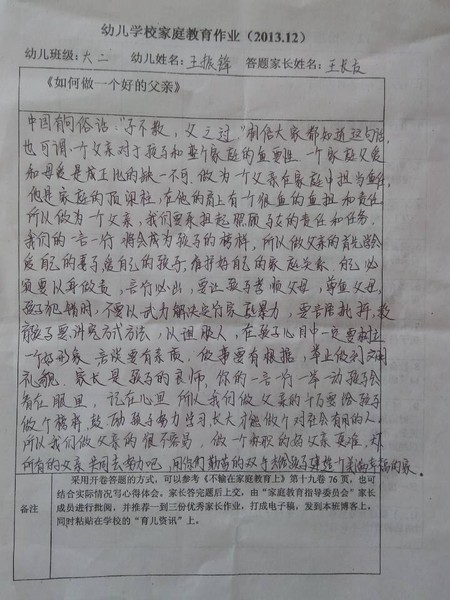 幼儿学校家庭教育作业（2013.12）
幼儿班级：大二 幼儿姓名：王振锋 答题家长姓名：王长友
《如何做一个好的父亲》
中国有句俗话："子不教，父之过。"相信大家都知道这句话，
也可谓一个父亲对于孩子和整个家庭的重要性。一个家庭父爱
和母爱是成正比的缺一不可。做为一个父亲在家庭中担当重任，
他是家庭的顶梁柱，在他的肩上有个很重的重担和责任
所以做为一个父亲，我们要承担起照顾子女的责任和任务。
我们的一言一行将会成为孩子的榜样，所以做父亲的首先学会
爱自己的妻子爱自己的孩子，维护好自己的家庭关系，自己必
须要以身做责，言行必出，要让孩子孝顺父母，尊重父母，
孩子犯错时，不要以武力解决实行家庭暴力，要言语批评，教
育孩子要讲究方式方法，以理服人，在孩子心目中一定要树立
一个好形象，言谈要有素质，做事要有根据，举止做到文明
礼貌。家长是孩子的良师，你的一言一行一举一动孩子会
看在眼里，记在心里，所以我们做父亲的千万要给孩子
做个榜样，鼓励孩子努力学习，长大才能做个对社会有用的人，
所以我们做父亲的很不容易，做一个称职的好父亲更难，
所有的父亲共同去努力吧，用你们勤劳的双手
备注
采用开卷答题的方式，可以参考《不输在家庭教育上》第十九卷 76 页，也可
结合实际情况写心得体会。家长答完题后上交，由“家庭教育指导委员会”家长
成员进行批阅，并推荐一到三份优秀家长作业，打成电子稿，发到本班博客上。
同时粘贴在学校的“育儿资讯”上。